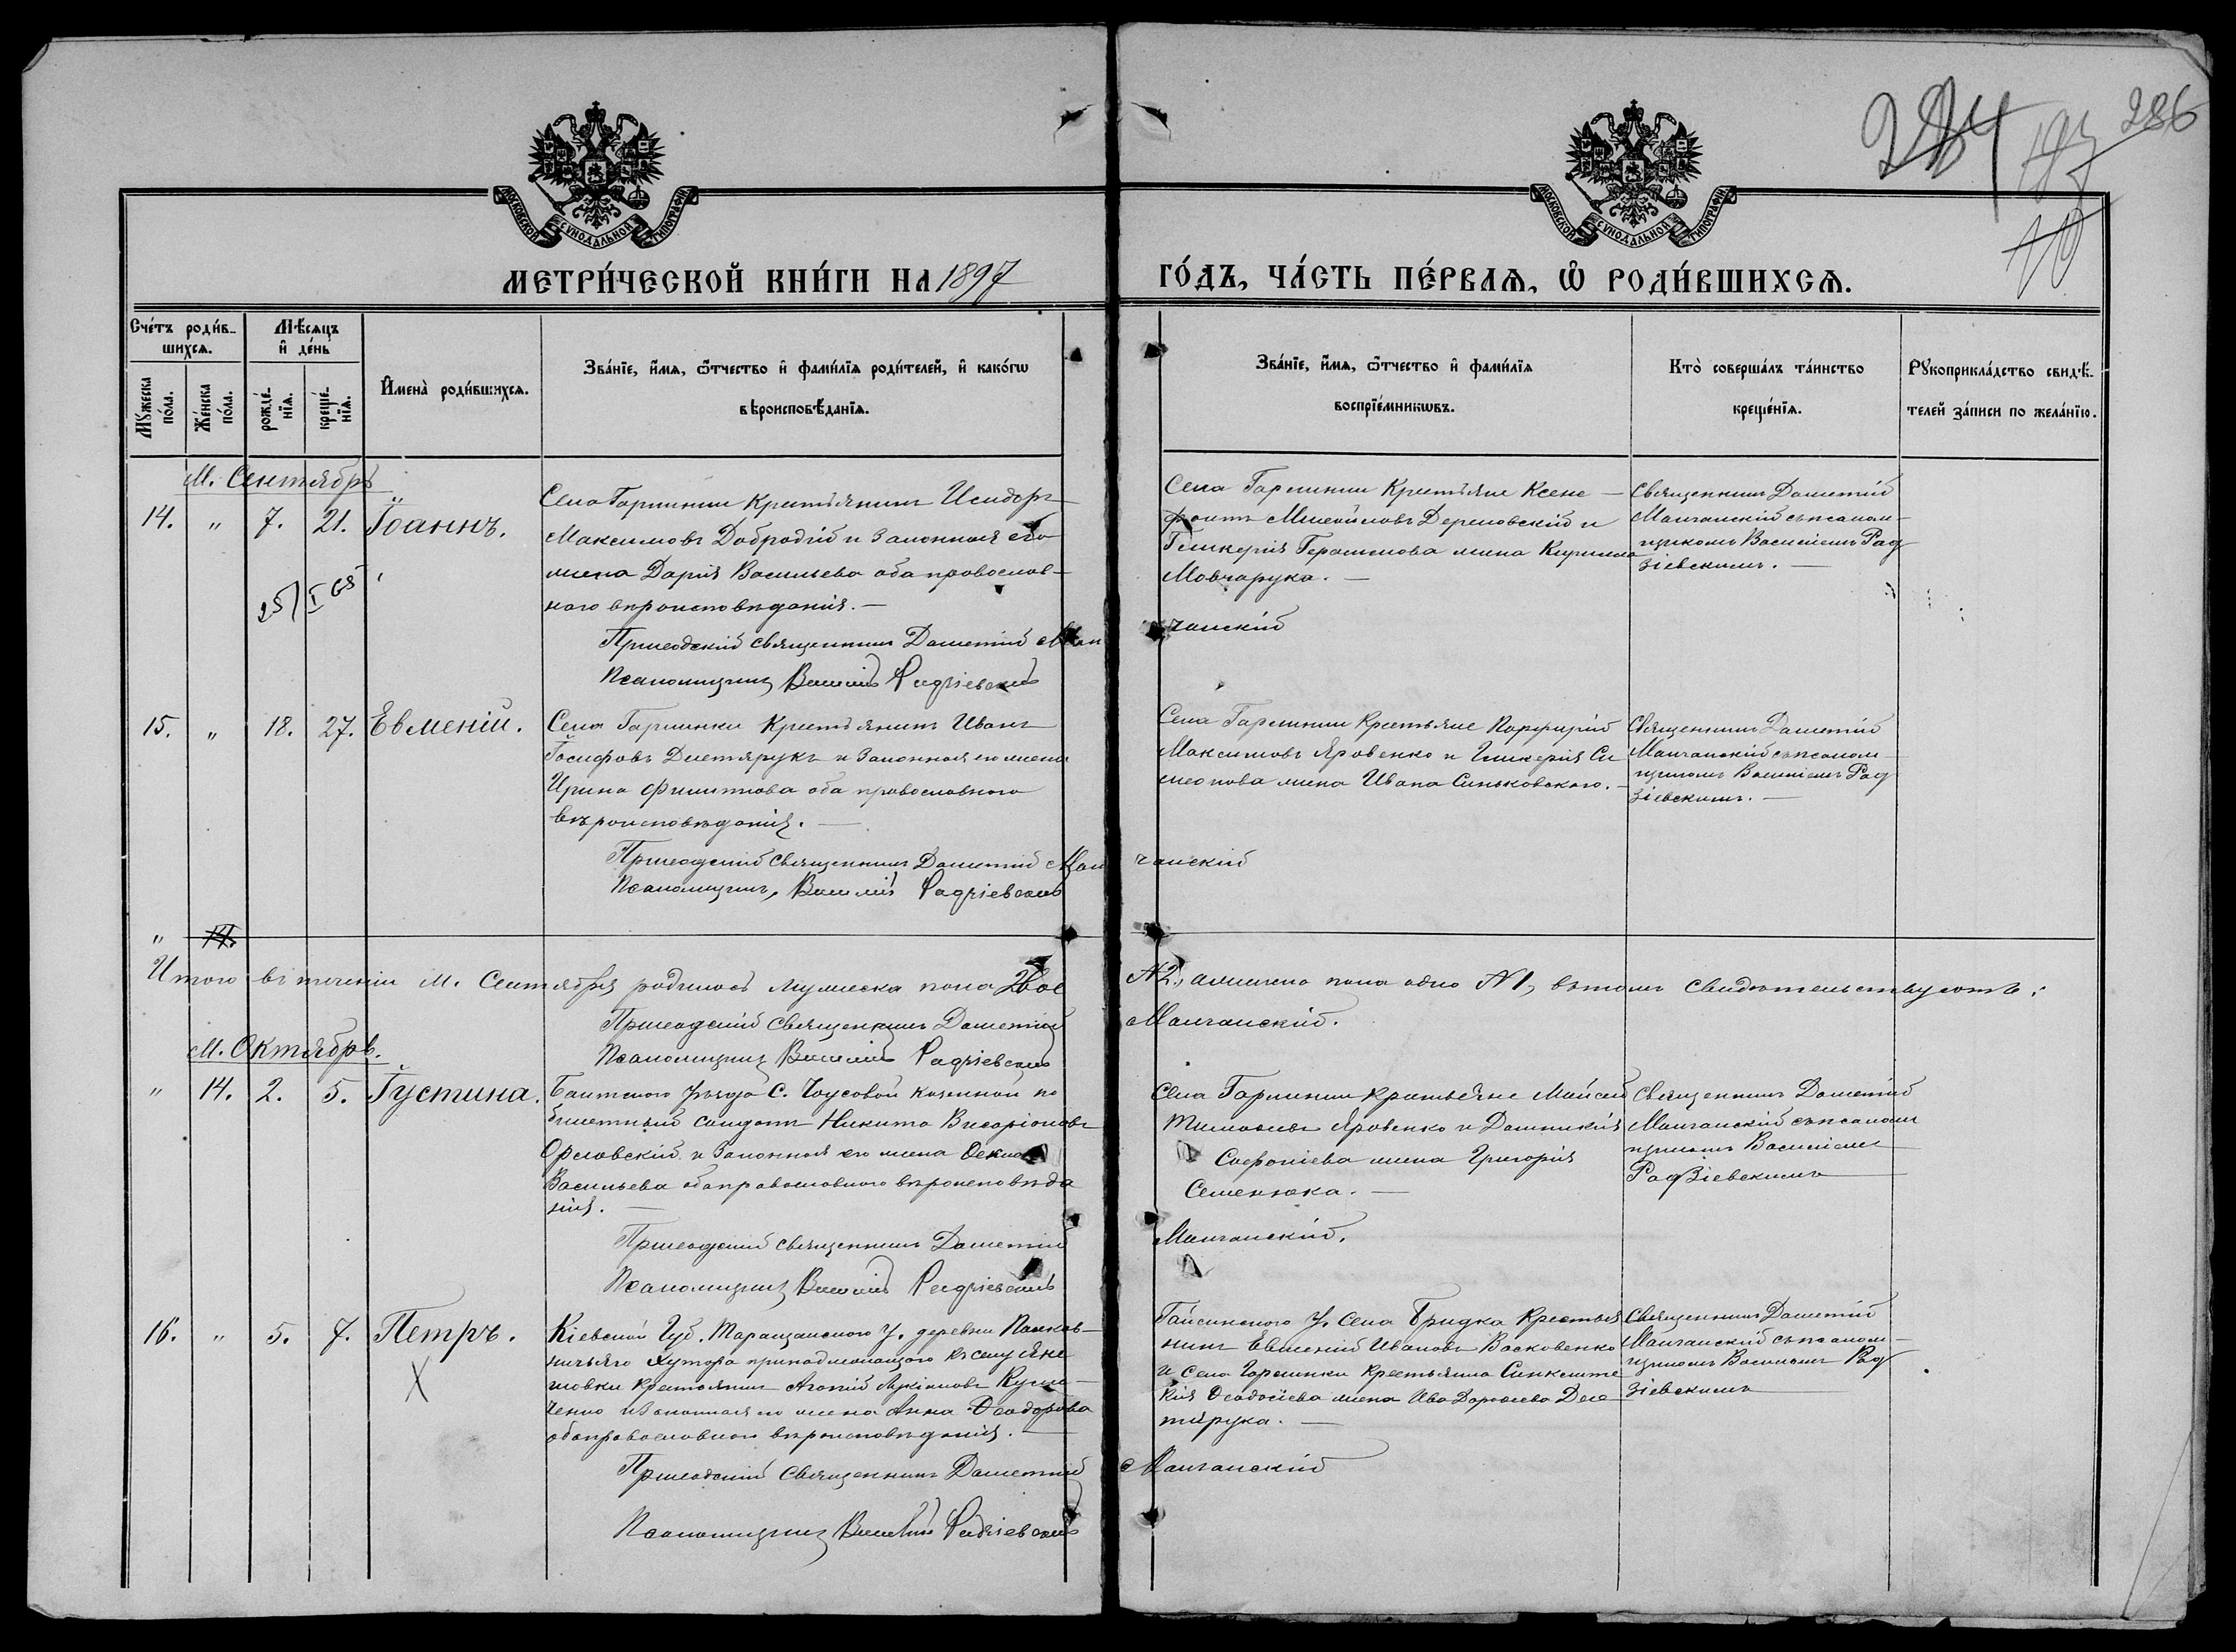 284 193 286
10
МОСКОВСКОЙ СѴНОДАЛЬНОЙ ТИПОГРАФІИ
МОСКОВСКОЙ СѴНОДАЛЬНОЙ ТИПОГРАФІИ
МЕТРИ́ЧЕСКОЙ КНИ́ГИ НА 1897 ГО́ДЪ, ЧА́СТЬ ПЕ́РВАѦ, Ѽ РОДИ́ВШИХСѦ.
Сче́тъ роди́в-
шихсѧ.
Мѹ́жеска
по́ла.
Же́нска
по́ла.
Мѣ́сѧцъ
и҆ де́нь
рожде́-
нїѧ.
креще́-
нїѧ.
И҆мена̀ роди́вшихсѧ.
Зва́нїе, и҆́мѧ, ѻ҆́тчество и҆ фами́лїѧ роди́телей, и҆ како́гѡ
вѣроисповѣ́данїѧ.
Зва́нїе, и҆́мѧ, ѻ҆́тчество и҆ фами́лїѧ
воспрїе́мникѡвъ.
Кто̀ соверша́лъ та́инство
креще́нїѧ.
Рѹкоприкла́дство свидѣ́-
телей за́писи по жела́нїю.
М. Сентябрь
14. " 7. 21. Іоаннъ.
Села Гармынки Крестьянинъ Исидоръ
Максимовъ Добродій и законная его
жена Дарія Васильева оба православ-
наго вѣроисповѣданія. —
Приходскій Священникъ Дометій Ман
чанскій
Псаломщикъ Василій Радзіевскій
Крестьяне Ксено —
фонтъ Михайловъ и
Гликерія Герасимова жена Кирилла
Мовчарука. —
Священникъ Дометій
Манчанскій съ псалом-
щикомъ Василіемъ Рад
зіевскимъ. —
15. " 18. 27. Евменій.
Села Гармынки Крестьянинъ Иванъ
Іосифовъ Дехтярукъ и законная его жена
Ирина Филиппова оба православнаго
вѣроисповѣданія. —
Приходскій Священникъ Дометій Ман
чанскій
Псаломщикъ, Василій Радзіевскій
Крестьяне Порфирій
Максимовъ Яровенко и Гликерія Си
меонова жена Ивана Синьковскаго. —
Священникъ Дометій
Манчанскій съ псалом-
щикомъ Василіемъ Рад
зіевскимъ. —
" 14.
Итого въ теченіи М. Сентября родилось мужеска пола двое №2, а женска пола одно №1, въ томъ свидѣтельствуютъ:
Приходскій Священникъ Дометій Манчанскій.
Псаломщикъ Василій Радзіевскій
М. Октябрь.
" 14. 2. 5. Іустина.
Балтскаго уѣзда С.
билетный солдатъ Никита Висаріоновъ
Ореховскій и законная его жена
Васильева оба православнаго вѣроисповѣда
нія. —
Приходскій Священникъ Дометій
Манчанскій.
Псаломщикъ Василій Радзіевскій
Крестьяне Мойсей
Яровенко и Домникія
Софоніева жена Григорія
Семенюка. —
Священникъ Дометій
Манчанскій съ псалом
щикомъ Василіемъ
Радзіевскимъ
16. " 5. 7. Петръ.
Кіевской Губ. Таращанскаго У. деревни
хутора принадлежащаго къ селу
крестьянинъ Агапій
и законная его жена Анна Ѳеодорова
оба православнаго вѣроисповѣданія. —
Приходскій Священникъ Дометій
Манчанскій
Псаломщикъ Василій Радзіевскій
Гайсинскаго У. Села Бридка Крестья
нинъ Евменій Ивановъ Восковенко
и Села Гармынки крестьянка Синклити
кія Ѳеодосіева жена Дех
тярука. —
Священникъ Дометій
Манчанскій съ псалом-
щикомъ Василіемъ Рад
зіевскимъ